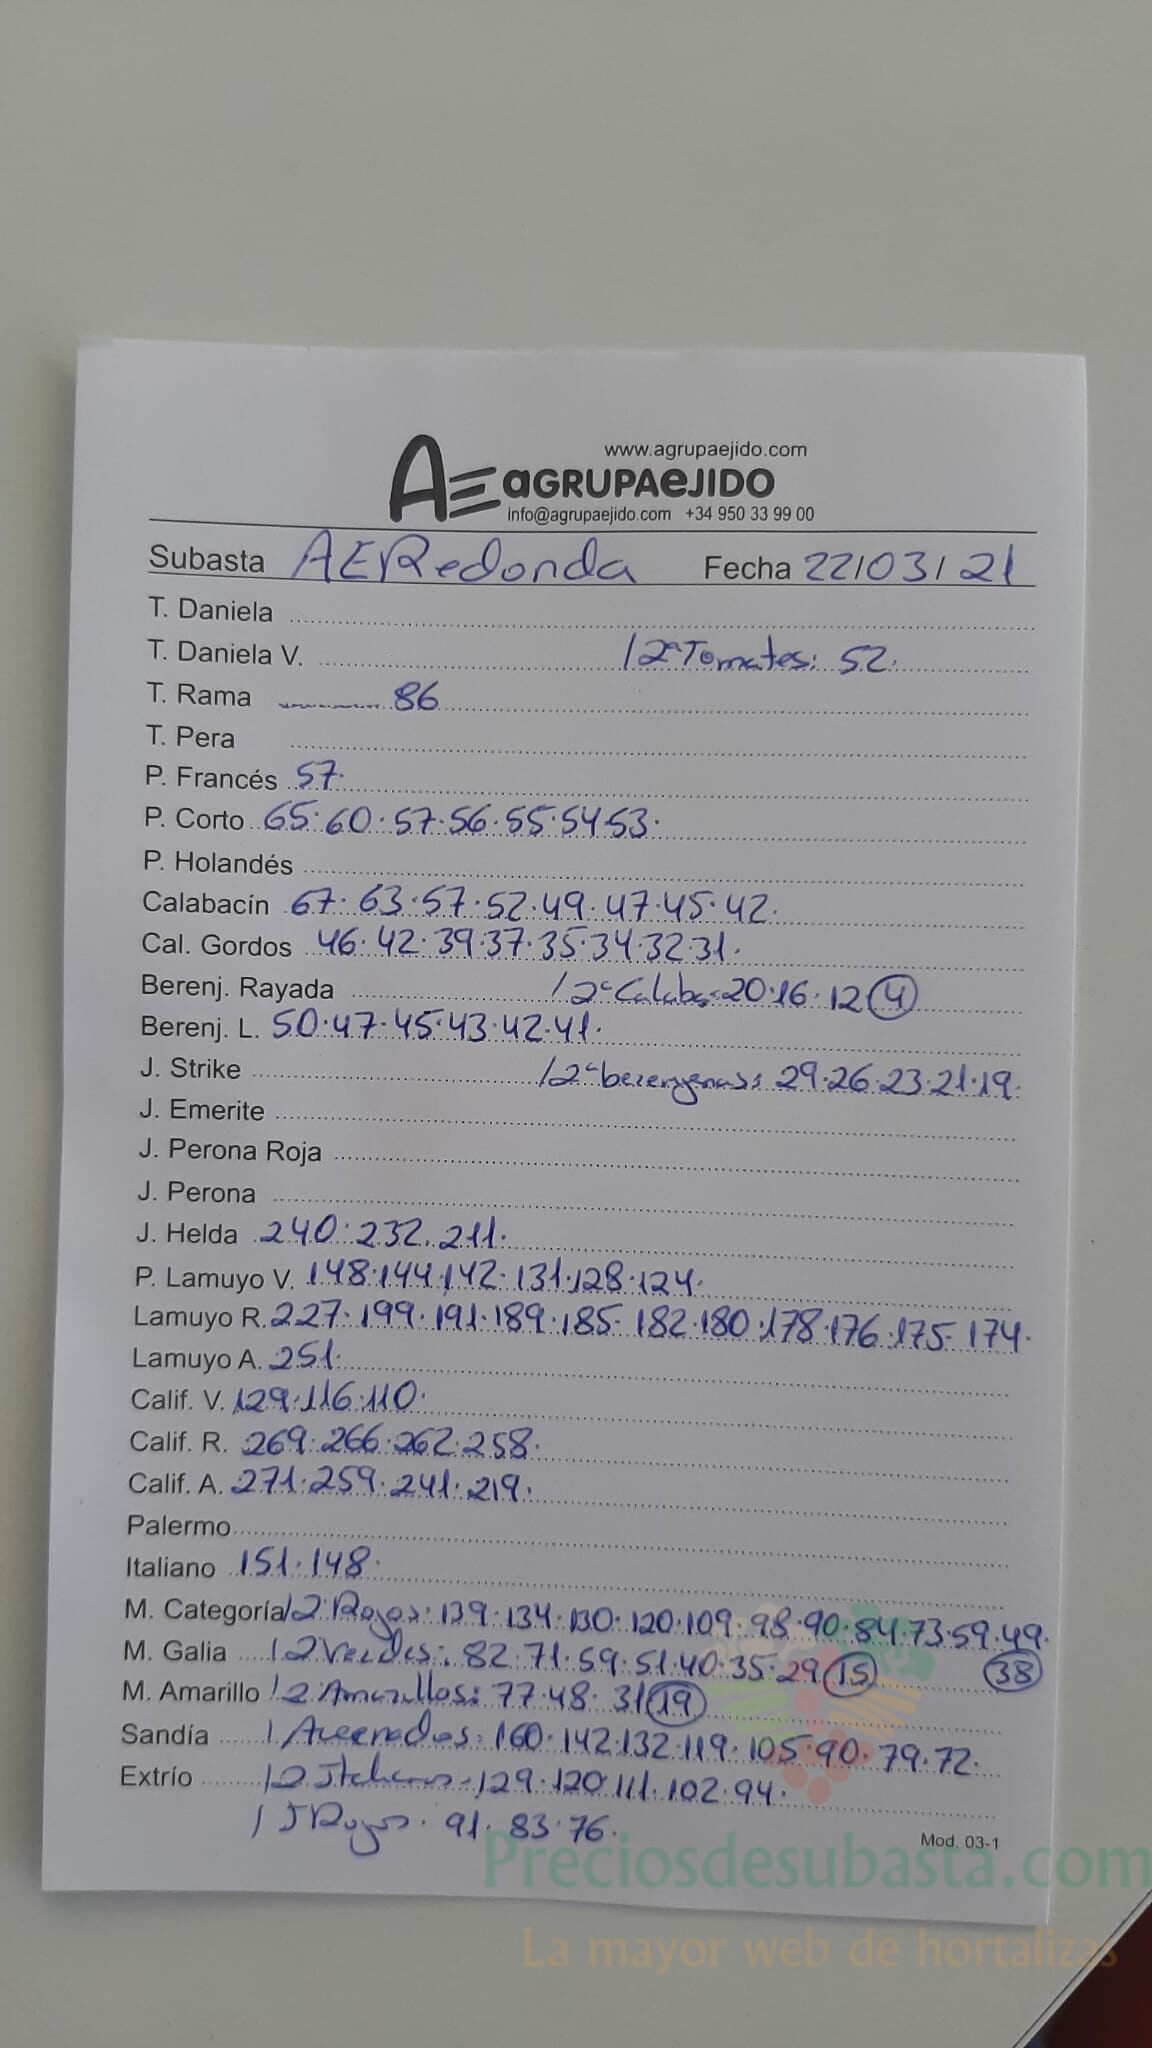 www.agrupaejido.com
AE aGRUPAeJIDO
info@agrupaejido.com +34 950 33 99 00
Subasta AERedonda Fecha 22/03/21
T. Daniela
T. Daniela V. /2ª Tomates: 52.
T. Rama 86
T. Pera
P. Francés 57.
P. Corto 65.60.57.56.55.54.53.
P. Holandés
Calabacín 67.63.57.52.49.47.45.42.
Cal. Gordos 46.42.39.37.35.34.32.31.
Berenj. Rayada /2ª Calabs: 20.16.12 (4)
Berenj. L. 50.47.45.43.42.41.
J. Strike /2ª berengenas: 29.26.23.21.19.
J. Emerite
J. Perona Roja
J. Perona
J. Helda 240.232.211.
P. Lamuyo V. 148.144.142.131.128.124.
Lamuyo R. 227.199.191.189.185.182.180.178.176.175.174.
Lamuyo A. 251.
Calif. V. 129.116.110.
Calif. R. 269.266.262.258.
Calif. A. 271.259.241.219.
Palermo
Italiano 151.148.
M. Categoría /2 Rojos: 139.134.130.120.109.98.90.84.73.59.49.
M. Galia /2 Verdes: 82.71.59.51.40.35.29 (15) (38)
M. Amarillo /2 Amarillos: 77.48.31 (19)
Sandía / 160.142.132.119.105.90.79.72.
Extrío /2 129.120.111.102.94.
/ J Rojos. 91.83.76.
Mod. 03-1
Preciosdesubasta.com
La mayor web de hortalizas